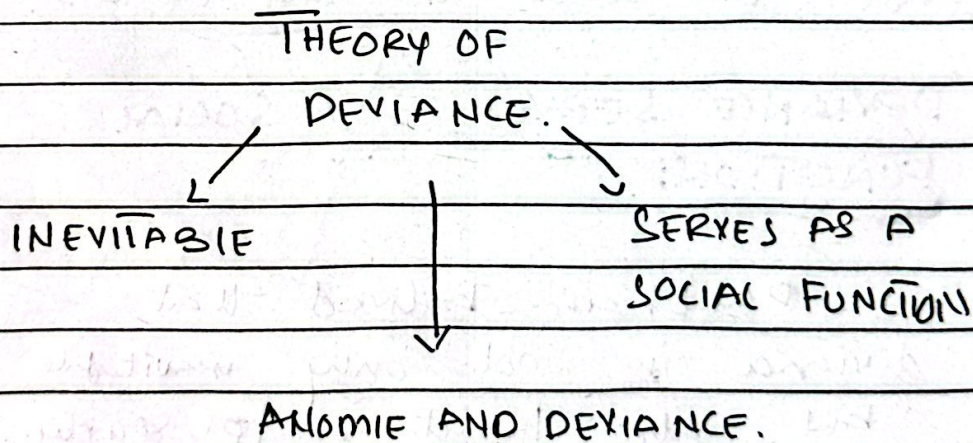 THEORY OF
DEVIANCE.
INEVITABLE
SERVES AS A
SOCIAL FUNCTION
ANOMIE AND DEVIANCE.